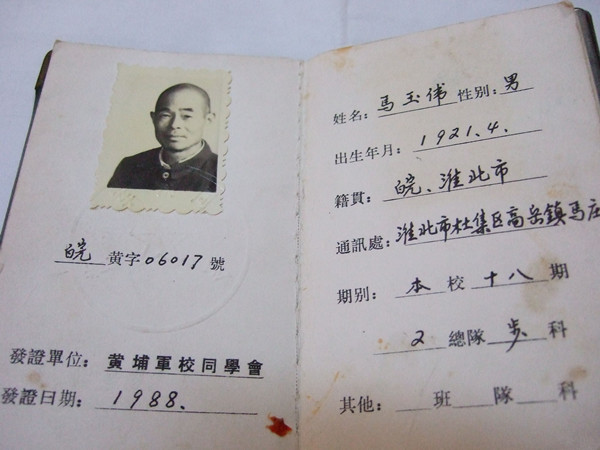 皖黄字06017號
發證單位:黄埔軍校同學會
發證日期:1988.
姓名:馬玉 性别:男
出生年月:1921.4.
籍貫:皖、淮北市
通訊處:淮北市杜集区高岳鎮馬庄
期别:本校十八期
2總隊步科
其他: 班 隊 科